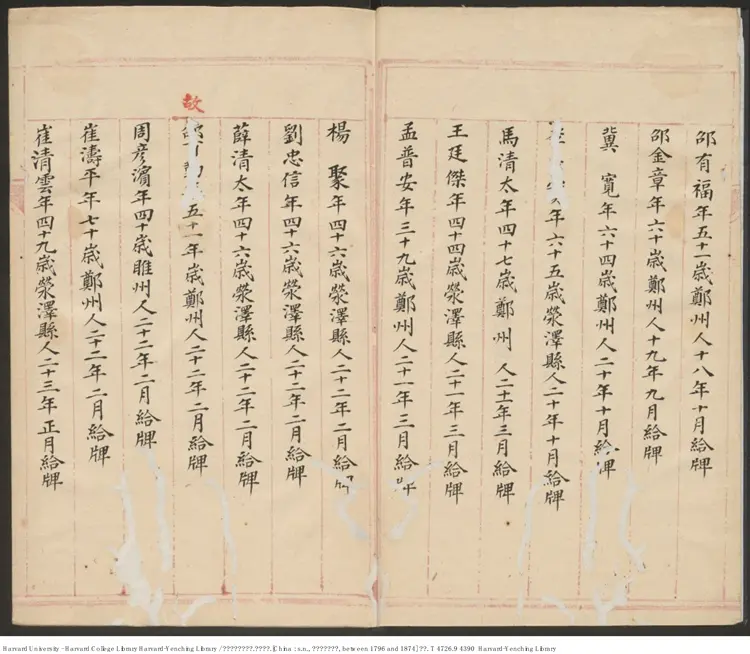 邵有福年五十一歲鄭州人十八年十月給牌
邵金章年六十歲鄭州人十九年九月給牌
冀寬年六十四歲鄭州人二十年十月給牌
年六十五歲滎澤縣人二十年十月給牌
馬清太年四十七歲鄭州人二十一年三月給牌
王廷傑年四十四歲滎澤縣人二十一年三月給牌
孟普安年三十九歲鄭州人二十一年三月給牌
楊聚年四十六歲滎澤縣人二十二年二月給牌
劉忠信年四十六歲滎澤縣人二十二年二月給牌
薛清太年四十六歲滎澤縣人二十二年二月給牌
故
五十一年歲鄭州人二十二年二月給牌
周彦濱年四十歲睢州人二十二年二月給牌
崔濤平年七十歲鄭州人二十二年二月給牌
崔清雲年四十九歲滎澤縣人二十三年正月給牌
Harvard University - Harvard College Library Harvard-Yenching Library / ????????.????.[China : s.n., ???????, between 1796 and 1874] ??. T 4726.9 4390 Harvard-Yenching Library